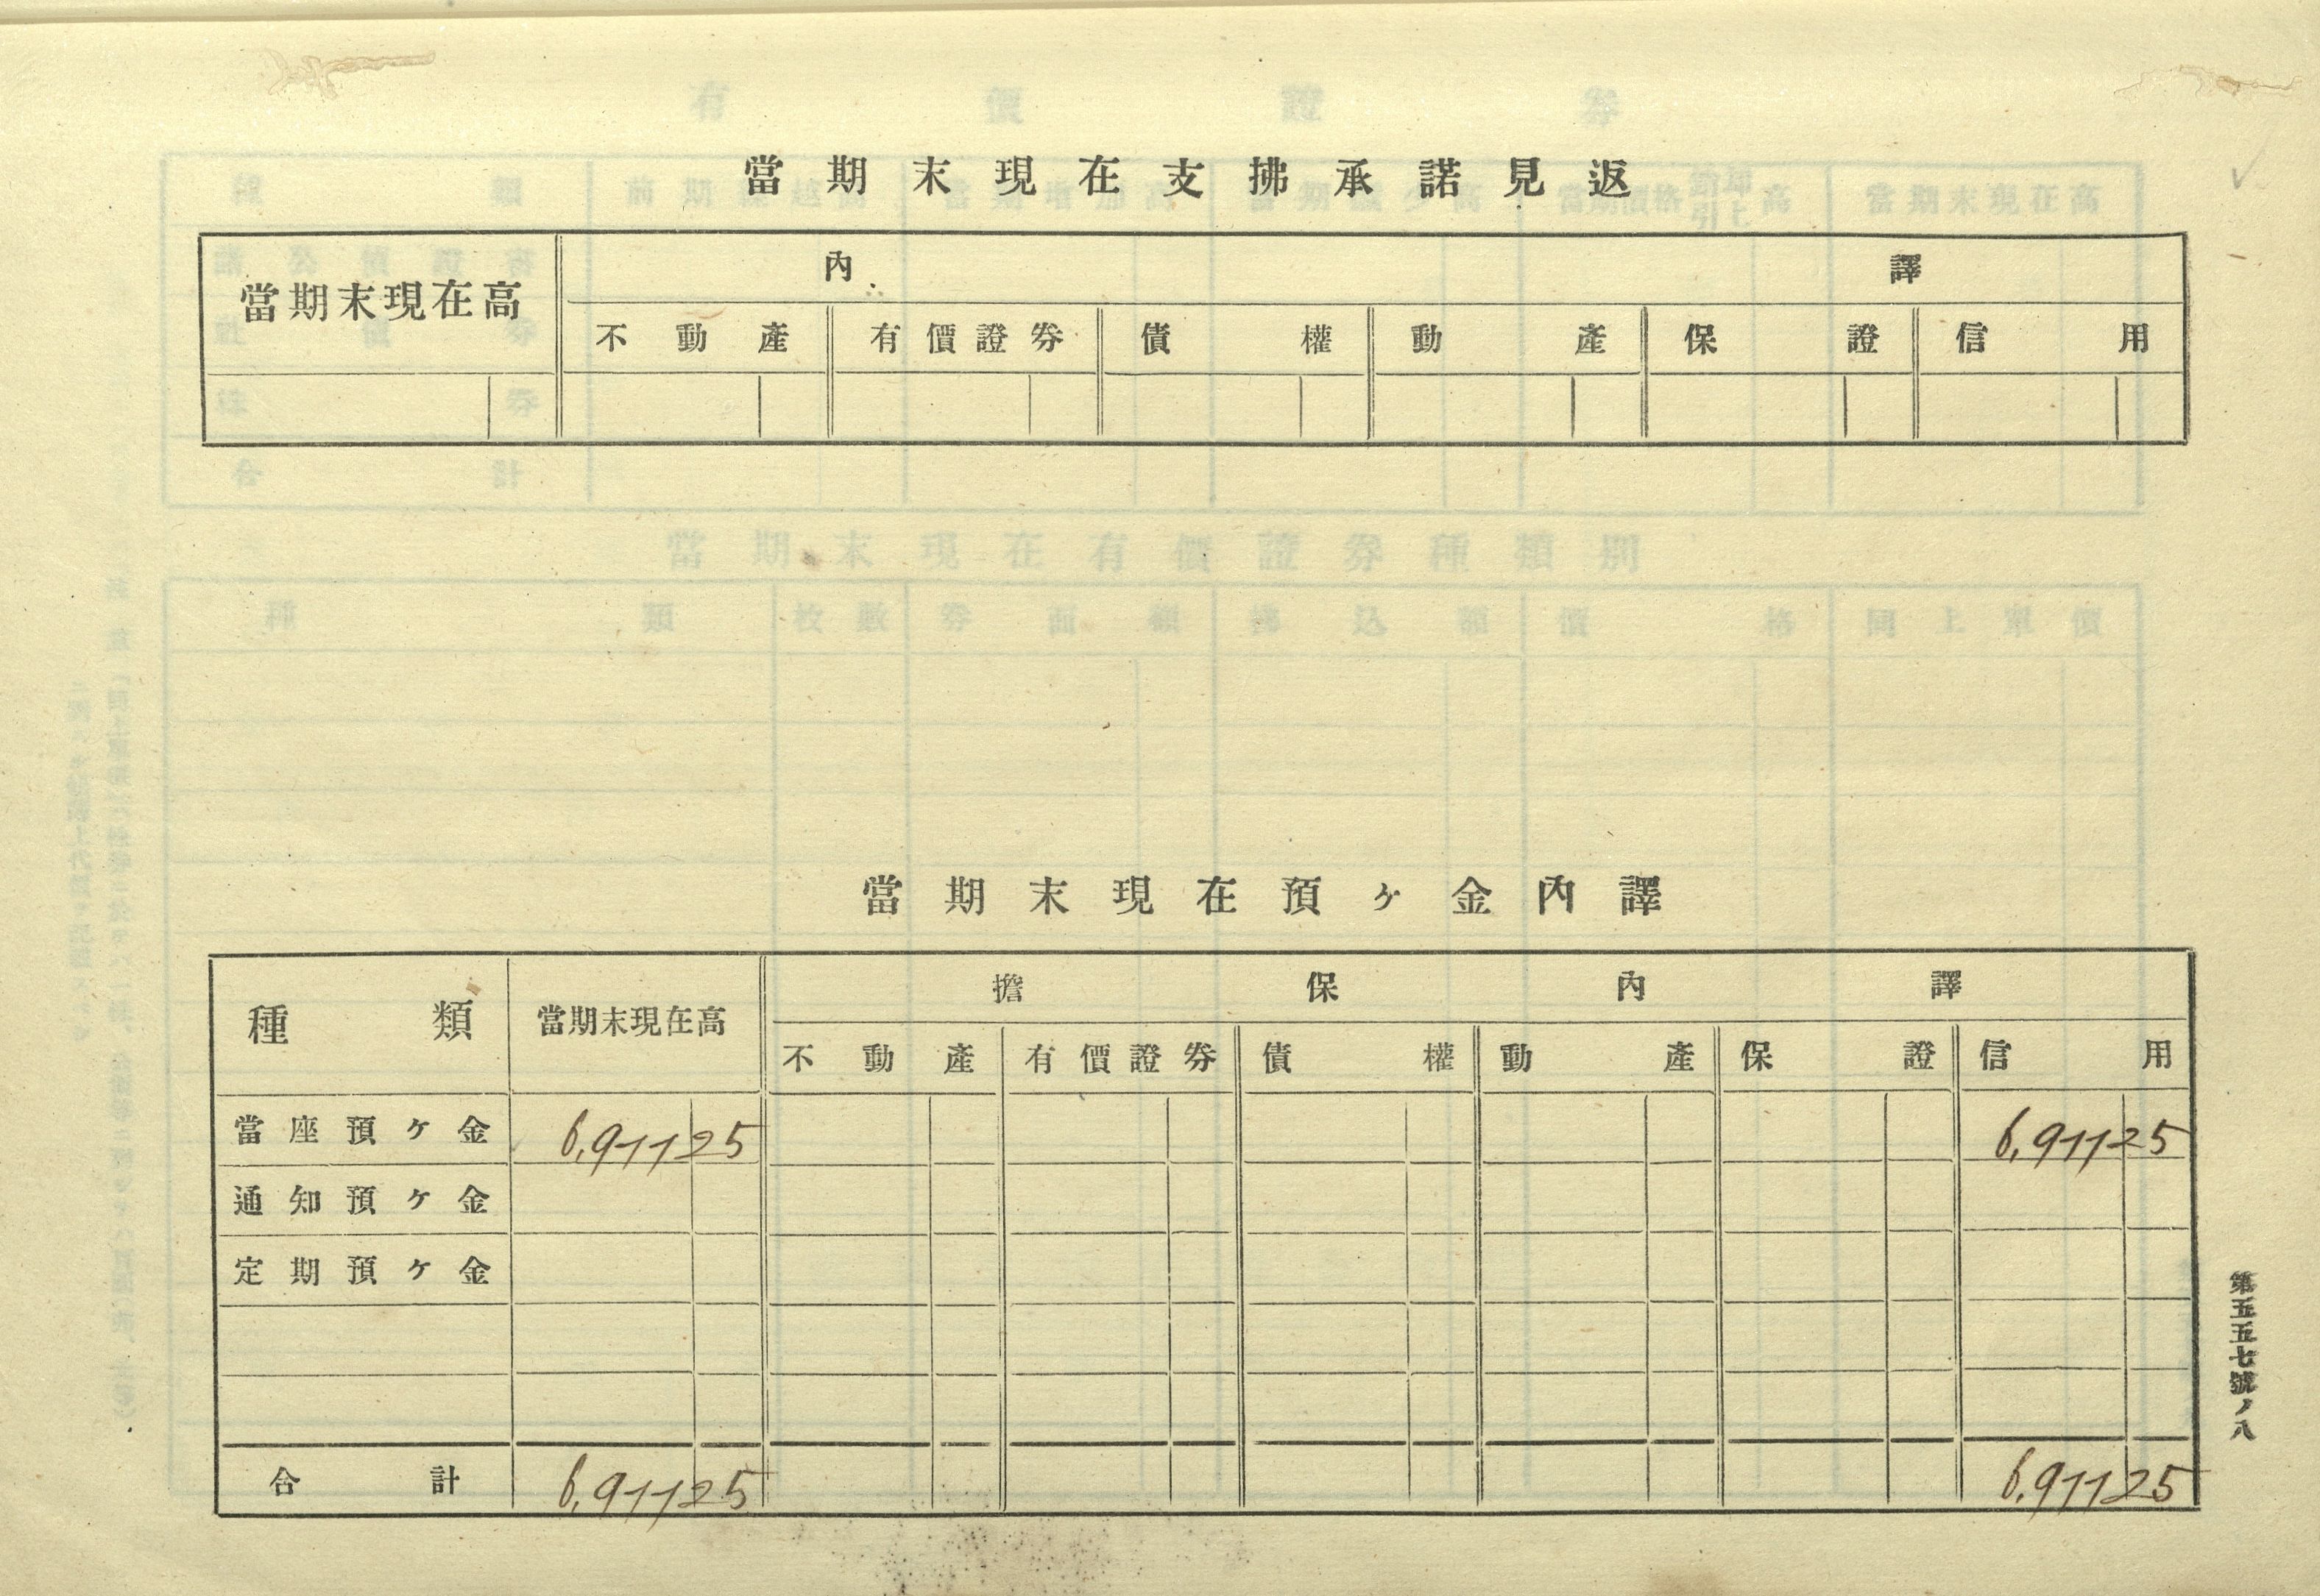 當期末現在支拂承諾見返
當期末現在高 內譯
不動產 有價證券 債權 動產 保證 信用
當期末現在預ヶ金內譯
種類 當期末現在高 擔保內譯
不動產 有價證券 債權 動產 保證 信用
當座預ヶ金 6,911 25 6,911 25
通知預ヶ金
定期預ヶ金
合計 6,911 25 6,911 25
第五五七號ノ八